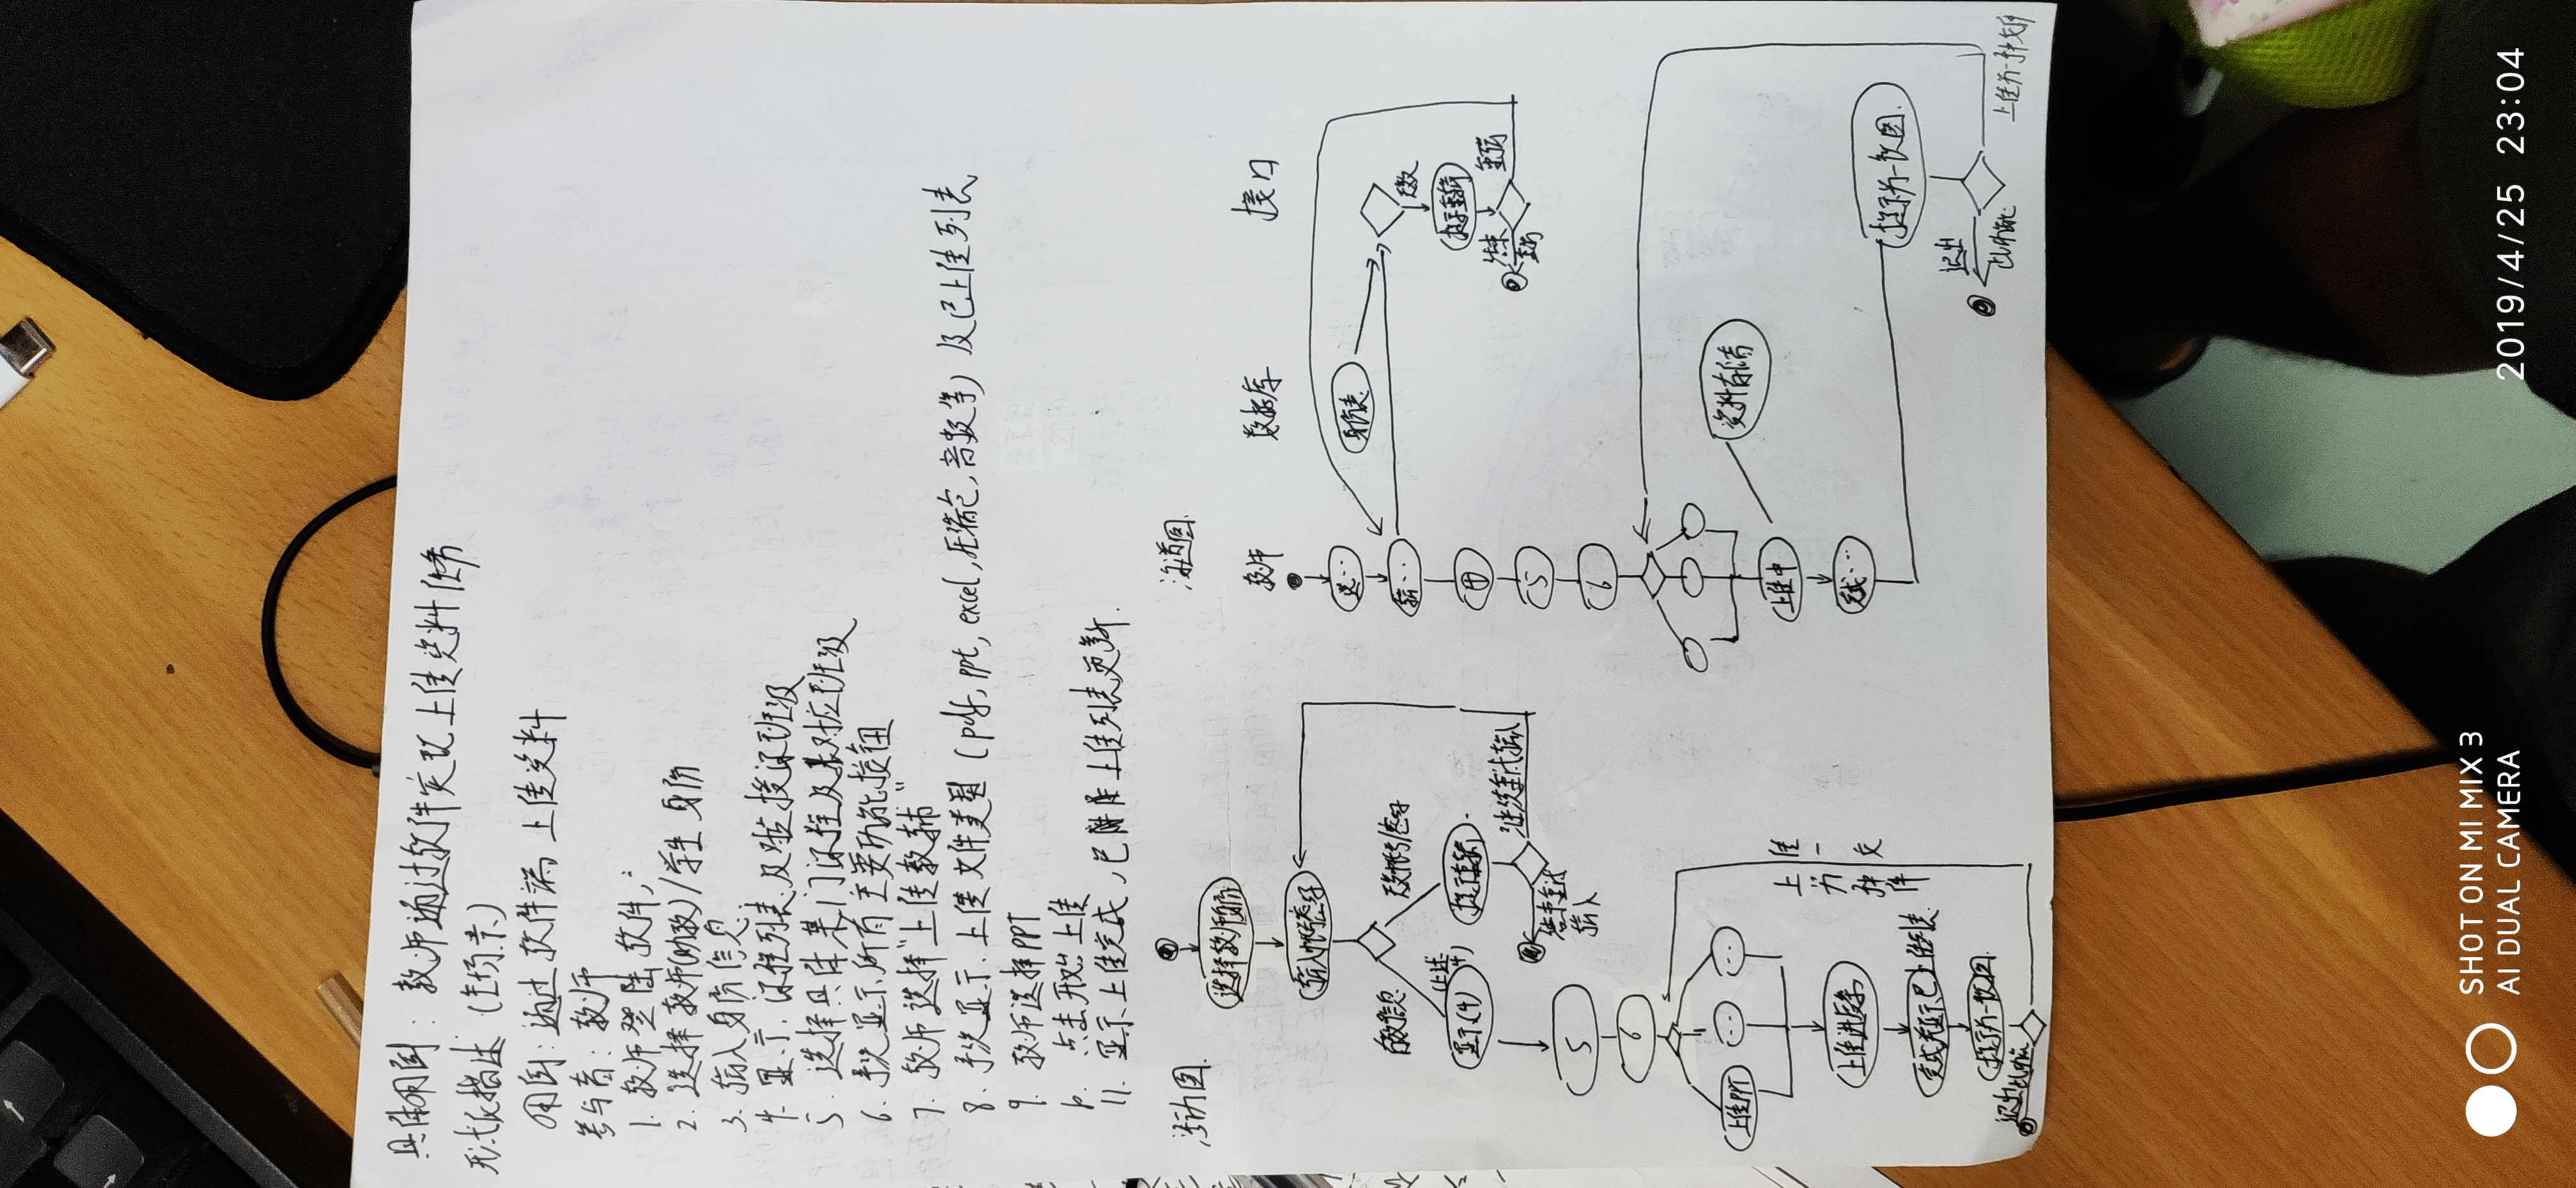 具体用例：教师通过软件实现上传资料任务
形式化描述（主场景）
用例：通过软件端上传资料
参与者：教师
1. 教师登陆软件；
2. 选择教师(助教)/学生身份
3. 输入身份信息.
4. 显示课程列表及对应授课班级
5. 选择具体某门课程及其对应班级
6. 系统显示所有主要功能按钮
7. 教师选择“上传教辅”
8. 系统显示上传文件类型（pdf, ppt, excel, 压缩包, 音频等）及已上传列表
9. 教师选择PPT
10. 点击开始上传
11. 显示上传完成，已上传列表更新.
活动图.
选择教师身份
输入帐号密码
有效信息
无效帐号/密码
显示(4)
(上述4)
提示重输
继续重试输入
结束重试输入
5
6
上传PPT
...
...
上传进度条
完成并显示已上传列表
提示另一次
退出此功能
上传另一种文件
泳道图.
教师 数据库 接口
选...
身份表
输...
无效
提示重输
结束重输
重输
4
5
6
上传中
资料存储
完成...
提示另一次
退出此功能
上传另一种文件
SHOT ON MI MIX 3
AI DUAL CAMERA
2019/4/25 23:04